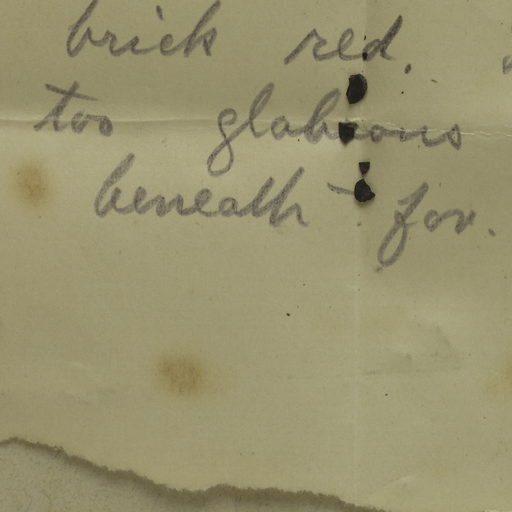 brick red.
too glabrous
beneath - for.